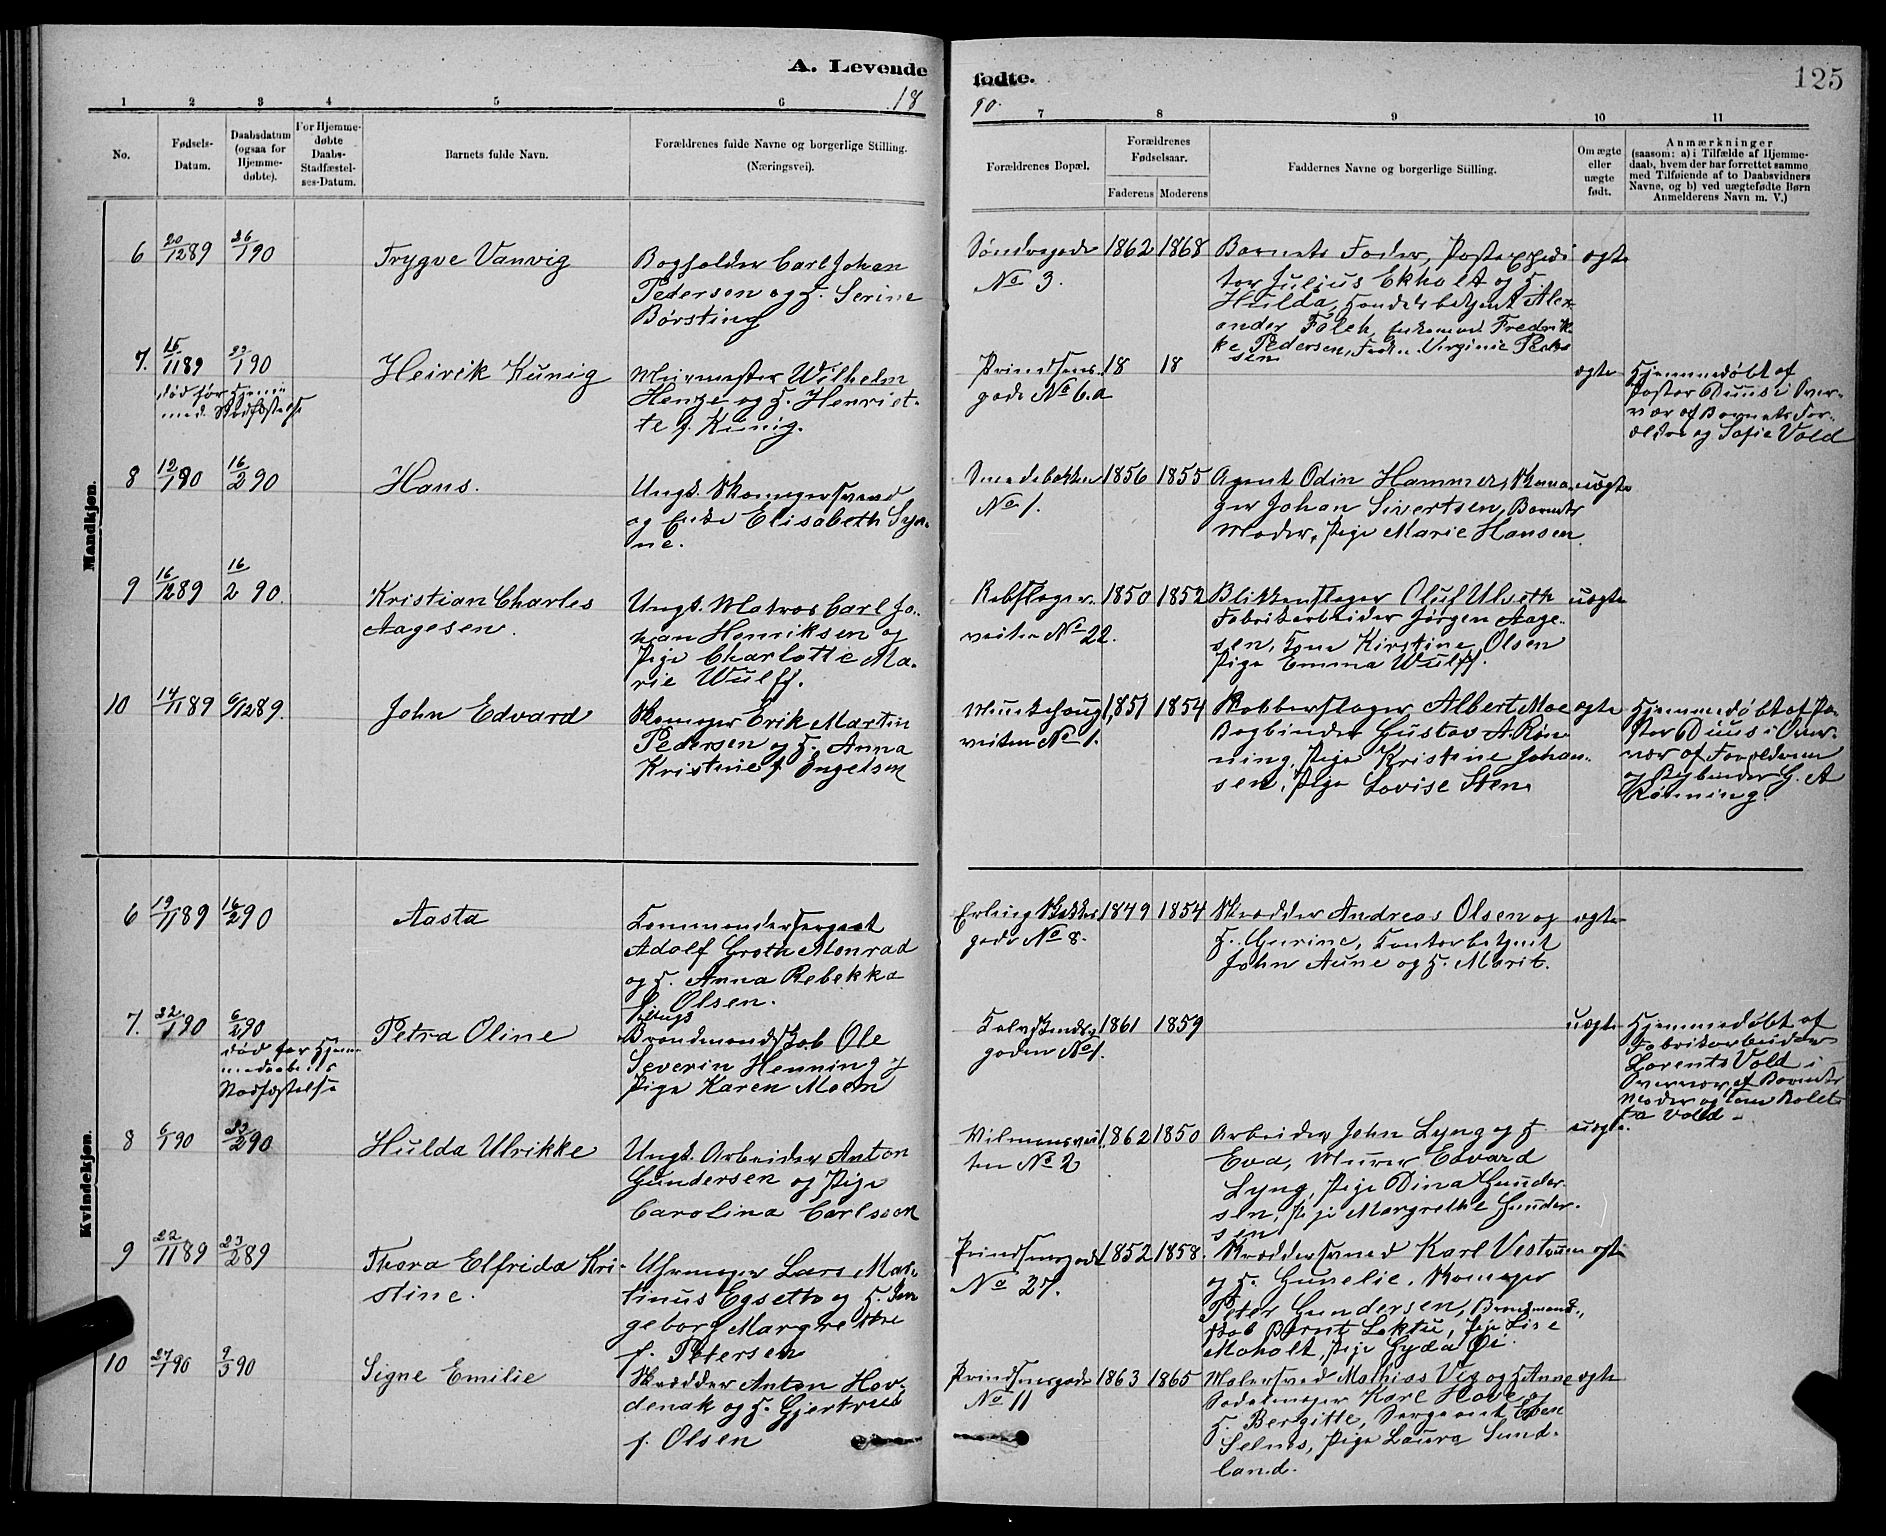 A. Levende
fødte.
125
18
90.
1 2 3 4 5 6
7 8 9 10 11
No.
Fødsels-
Datum.
Daabsdatum
(ogsaa for
Hjemme-
døbte).
For Hjemme-
døbte
Daabs-
Stadfæstel-
ses-Datum.
Barnets fulde Navn.
Forældrenes fulde Navne og borgerlige Stilling.
(Næringsvei).
Forældrenes Bopæl.
Forældrenes
Fødselsaar.
Faderens
Moderens
Faddernes Navne og borgerlige Stilling.
Om ægte
eller
uægte
født.
Anmærkninger
(saasom: a) i Tilfælde af Hjemme-
daab, hvem der har forrettet samme
med Tilføiende af to Daabsvidners
Navne, og b) ved uægtefødte Børn
Anmelderens Navn m. V.)
Mandkjøn.
6
20/12 89
26/1 90
Trygve Vanvig
Bogholder Carl Johan
Pedersen og H. Serine
Børsting
Søndregade
No 3.
1862
1868
Barnets Fader, Postexpedi
tør Julius Ekholt og H.
Hulda, Handelsbetjent Alex-
ander Falch, Fredrik-
ke Pedersen, Frøken Virginie Peder
sen
ægte
7.
15/11 89
23/1 90
død før Hjem
med. Stadfæstelse
Heirik Kunig
Muirmester Wilhelm
Henze og H. Henriet-
te f. Kunig.
Prindsens-
gade No 6.a
18
18
ægte
Hjemmedøbt af
Pastor Duus i Over-
vær af Barnets For-
ældre og Sofie Vold
8
12/1 90
16/2 90
Hans.
Ungk. Skomagersvend
og Enke Elisabeth Syn-
ne.
Smedebakken
No 1.
1856
1855
Agent Odin Hammer, Skoma
ger Johan Sivertsen, Barnets
Moder, Pige Marie Hansen.
uægte
9
16/12 89
16/2 90.
Kristian Charles
Aagesen.
Ungk. Matros Carl Jo-
han Henriksen og
Pige Charlotte Ma-
rie Wulff.
Rebslager-
veiten No 22.
1850
1852
Blikkenslager Oluf Ulseth
Fabrikarbeider Jørgen Aage-
sen, Kone Kirstine Olsen
Pige Emma Wulff.
uægte
10
14/11 89
6/12 89.
John Edvard
Skomager Erik Martin
Pedersen og H. Anna
Kristine f. Engelsen
Munkehaug
veiten No 1.
1851
1854
Kobberslager Albert Moe
Bogbinder Gustav A Røn-
ning, Pige Kristine Johan-
sen, Pige Lovise Sten
ægte
Hjemmedøbt af Pa-
stor Duus i Over-
vær af Forældrene
og Bogbinder G. A
Rønning.
Kvindekjøn.
6
19/11 89
16/2 90
Aasta
Kommandersergeant
Adolf Groth Monrad
og H. Anna Rebekka
f. Olsen.
Erling Skakkes
gade No 8.
1849
1854
Skrædder Andreas Olsen og
H. Gurine, Kontorbetjent
John Aune og H. Marit.
ægte
7.
22/1 90
6/2 90
død før Hjem
medaabens
Stadfæstelse
Petra Oline
Ungk
Brandmandskab Ole
Severin Henning og
Pige Karen Moen
Kalvskinds
gaden No 1.
1861
1859
uægte
Hjemmedøbt af
Fabrikarbeider
Lorents Vold i
Overvær af Barnets
Moder og Kone Kolet
ta Vold
8
6/1 90
23/2 90
Hulda Ulrikke
Ungk. Arbeider Anton
Gundersen og Pige
Carolina Carlsson
Vilmansvei
ten No 2
1862
1850
Arbeider John Lyng og H
Eva, Murer Edvard
Lyng, Pige Dina Gunder-
sen, Pige Margrethe Gunder-
sen
uægte.
9
22/11 89
23/2 89
Thora Elfrida Kri-
stine.
Uhrmager Lars Mar-
tinus Egseth og H. In
geborg Margrethe
f. Petersen
Prindsensgade
No 27.
1852
1858.
Skræddersvend Karl Vestrum
og H. Gunelie, Skomager
Peter Gundersen, Brandmand-
skab Bernt Løkta, Pige Lise
Moholt, Pige Gyda Øi
ægte
10
27/1 90
9/3 90
Signe Emilie
Skrædder Anton Hov-
denak og H. Gjertrud
f. Olsen
Prindsensgade
No 11
1863
1865
Malersvend Mathias Vig og H Anne
Sadelmager Karl Hove og
H. Bergitte, Sergeant Even
Selnes, Pige Laura Sund-
land.
ægte